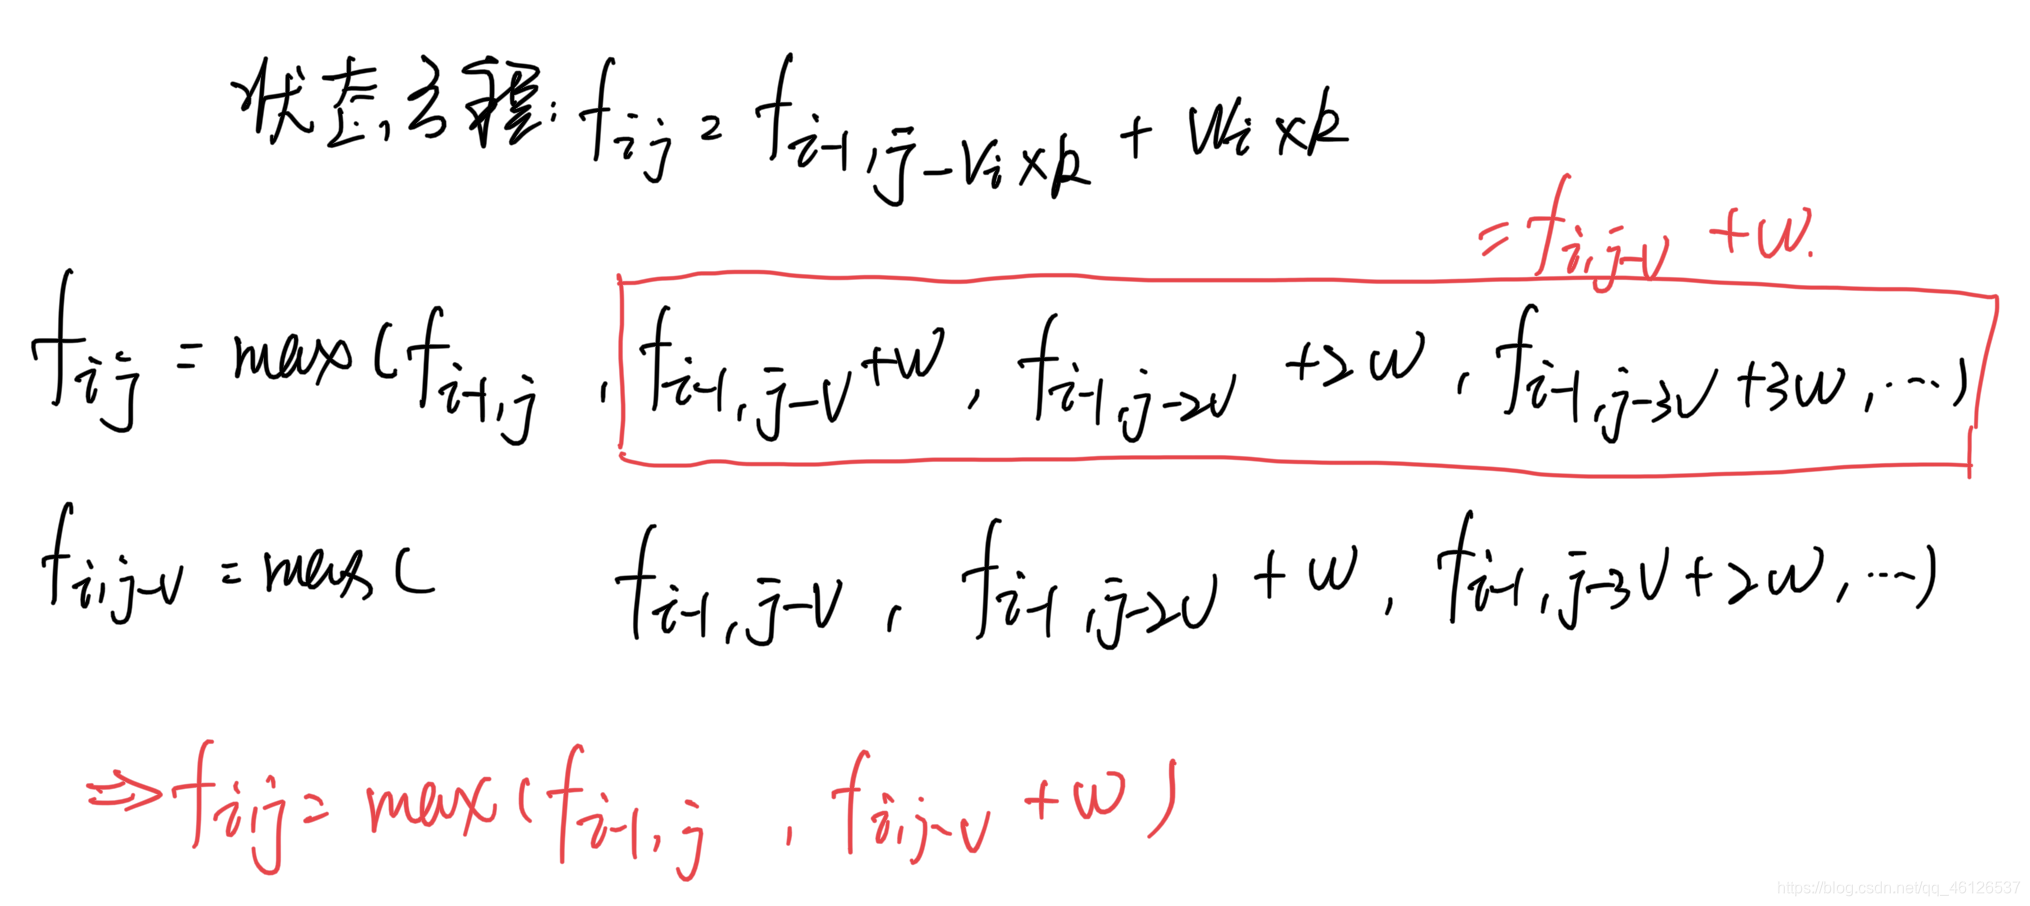 状态方程: f i j = f i-1, j-vi×k + wi×k
= f i, j-v + w.
f i j = max ( f i-1, j , f i-1, j-v + w , f i-1, j-2v + 2w , f i-1, j-3v + 3w , ...)
f i, j-v = max ( f i-1, j-v , f i-1, j-2v + w , f i-1, j-3v + 2w , ...)
⇒ f i, j = max ( f i-1, j , f i, j-v + w )
https://blog.csdn.net/qq_46126537